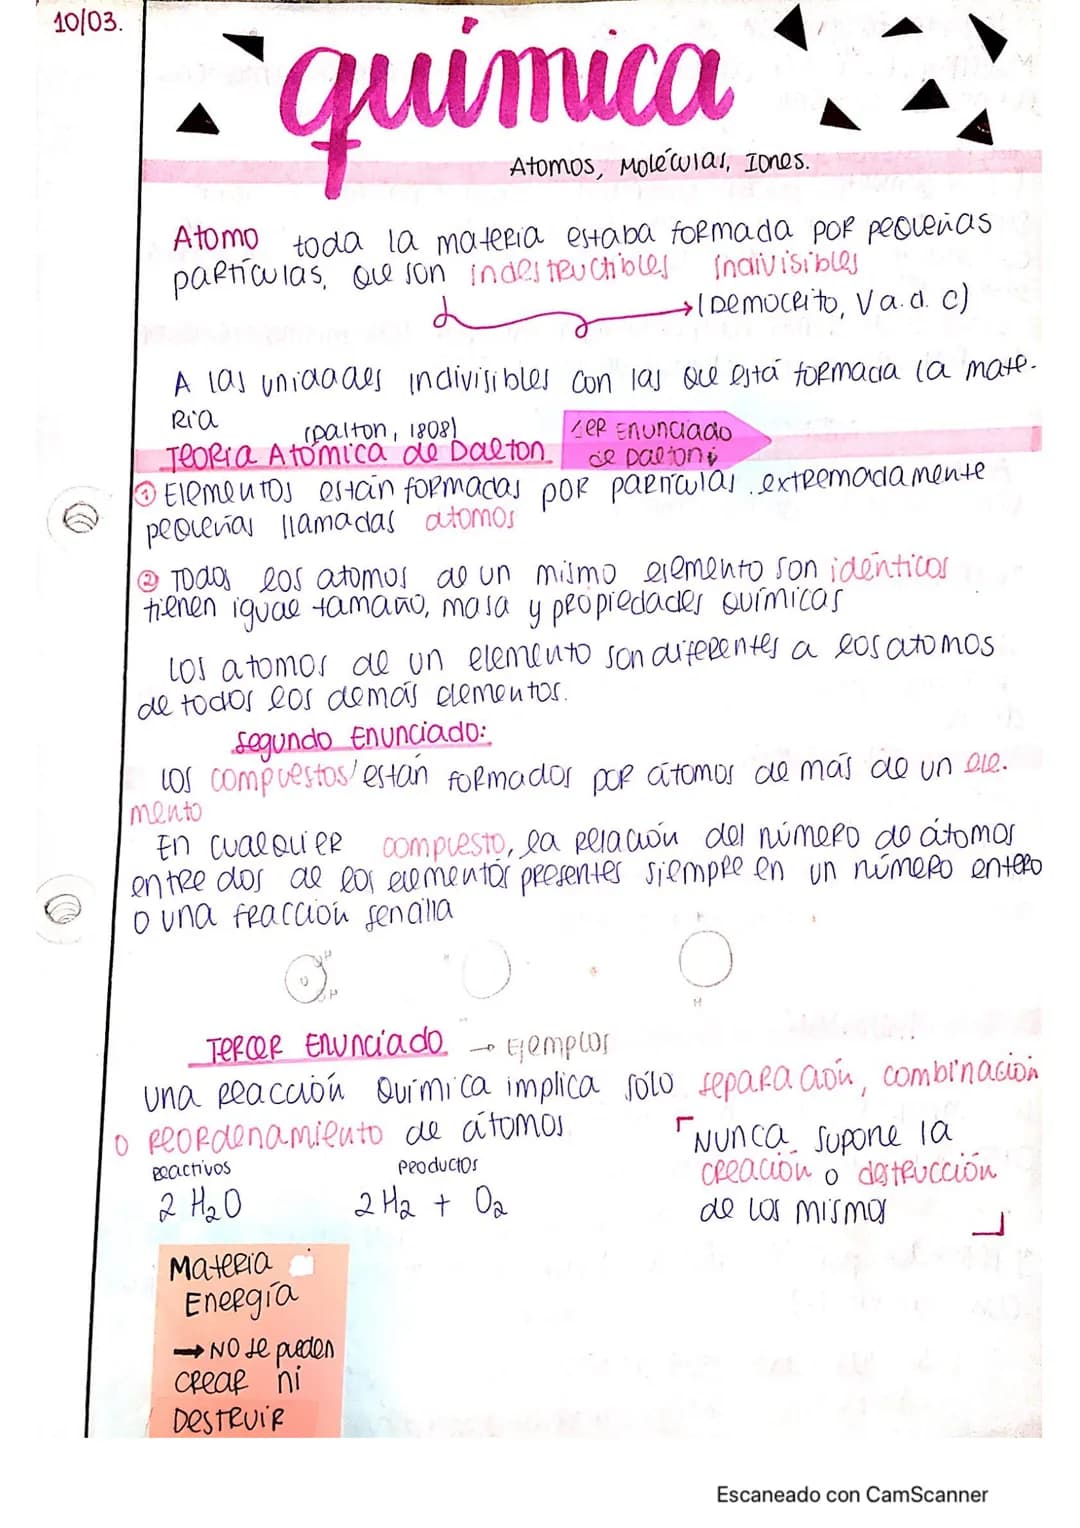 10/03.
química
Atomos, Moléculas, Iones.
Atomo toda la materia estaba formada por pequeñas
partículas, que son indestructibles indivisibles
(Democrito, V a.d. c)
A las unidades indivisibles con las que está formada la mate-
ria
(Dalton, 1808)
Teoria Atómica de Dalton
1er Enunciado
de Dalton:
① Elementos están formadas por partículas extremadamente
pequeñas llamadas atomos
② Todos los atomos de un mismo elemento son idénticos
tienen igual tamaño, masa y propiedades químicas
Los atomos de un elemento son diferentes a los atomos
de todos los demás elementos.
Segundo Enunciado:
Los compuestos están formados por átomos de más de un ele-
mento
En cualquier compuesto, la relación del número de átomos
entre dos de los elementos presentes siempre en un número entero
o una fracción sencilla
H
O
H
H
H
Tercer Enunciado → Ejemplos
una reacción química implica sólo separación, combinación
o reordenamiento de átomos
Nunca supone la
creación o destrucción
de los mismos
Reactivos Productos
2 H₂O 2 H₂ + O₂
Materia
Energía
→ No se pueden
crear ni
Destruir
Escaneado con CamScanner